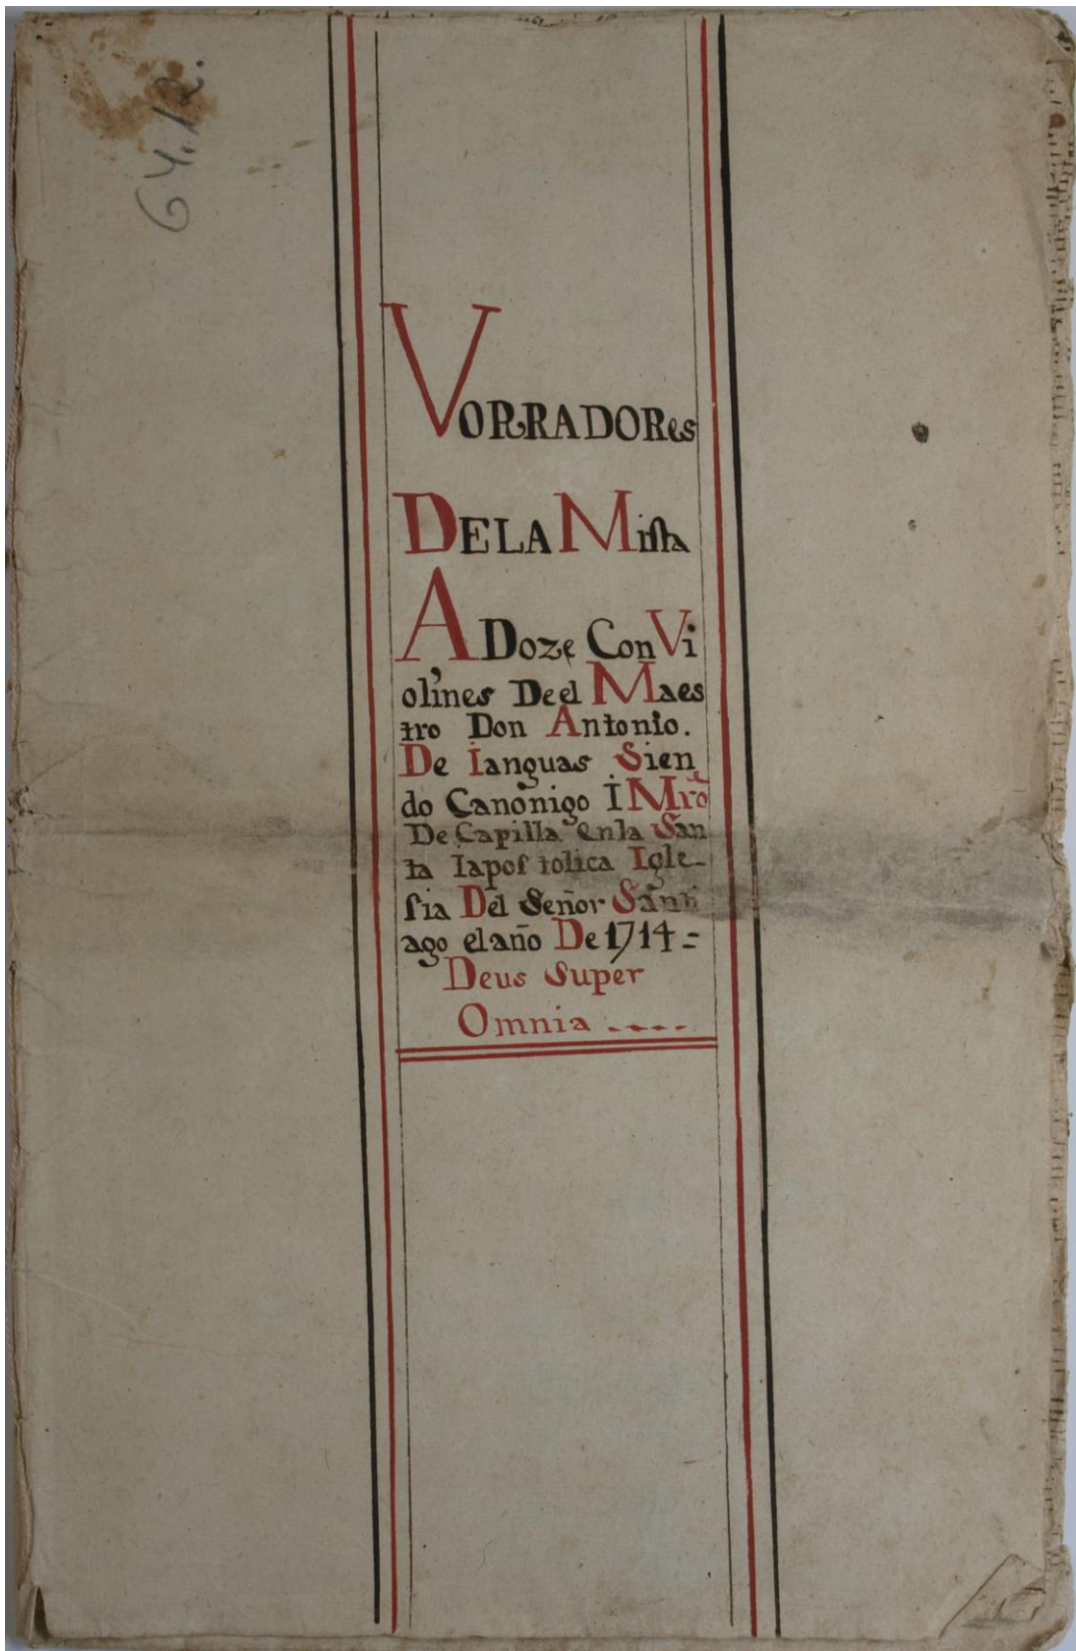 64.12.
VORRADORes
DE LA Missa
A Doze Con Vi
olines De el Maes
tro Don Antonio.
De Ianguas Sien
do Canonigo I Mro
De Capilla en la San
ta Iapos tolica Igle-
sia Del Señor Santi
ago el año De 1714=
Deus Super
Omnia ----